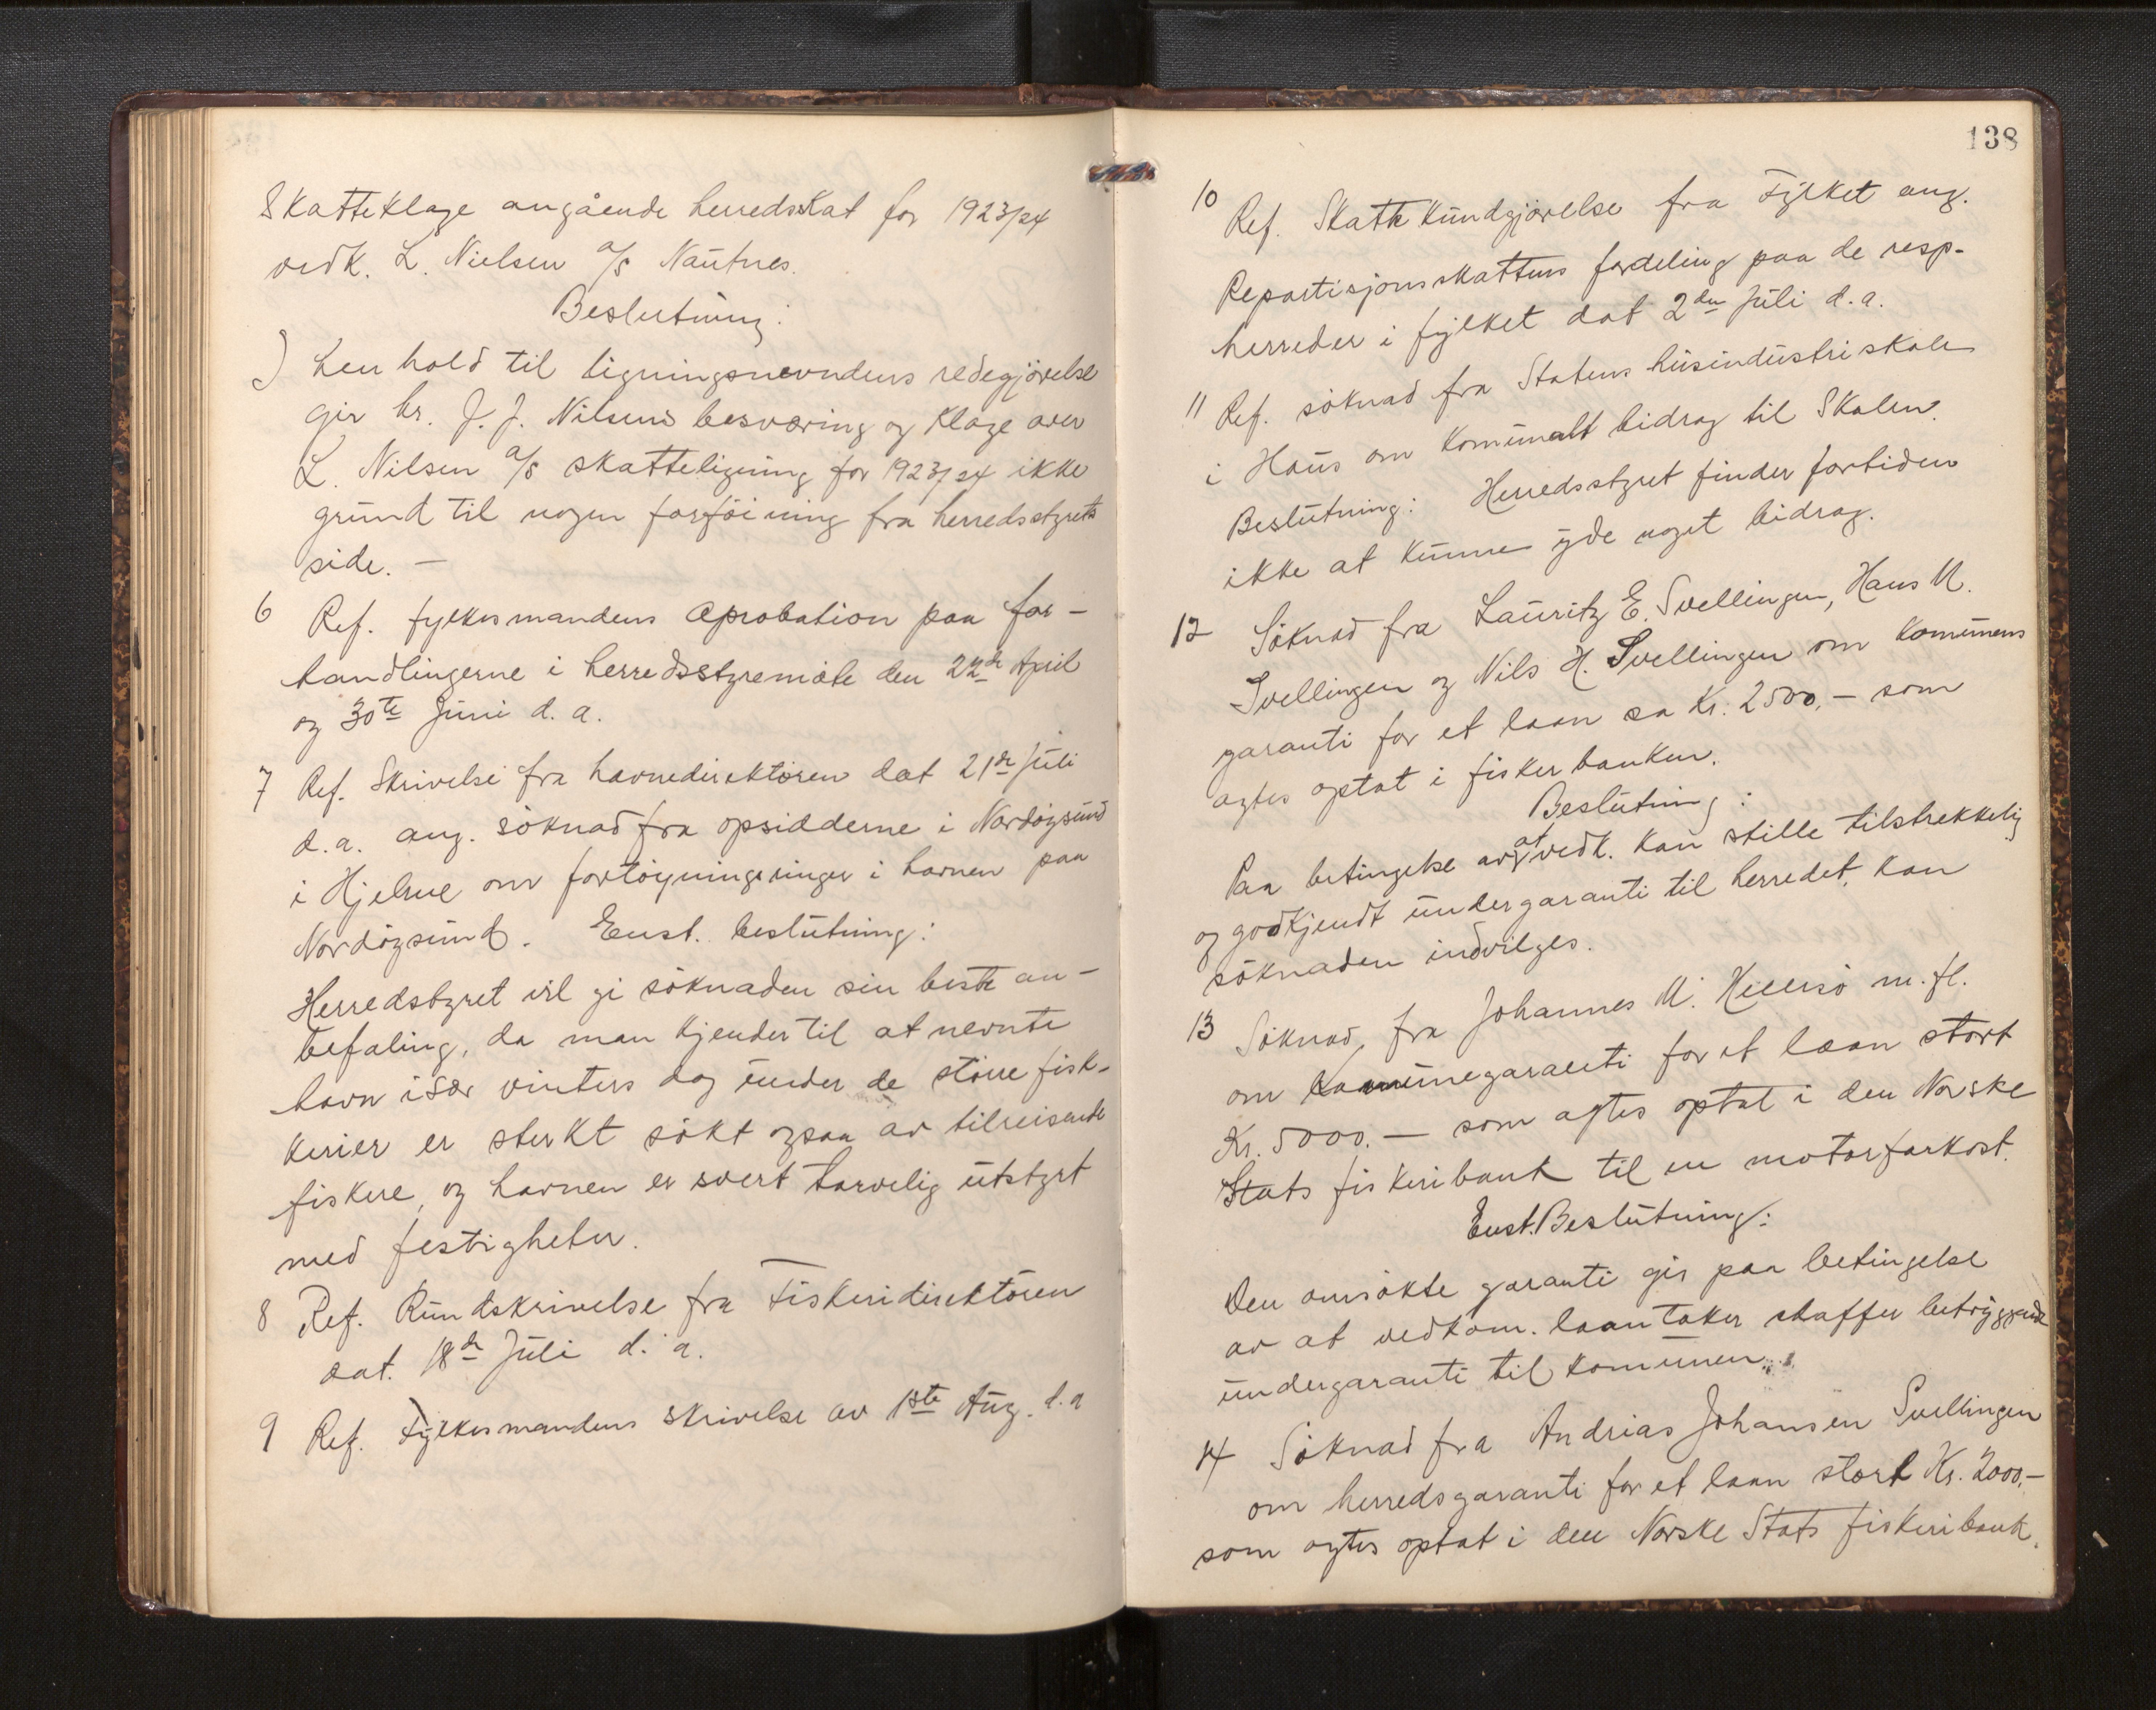 Skatteklage angående herredsskat for 1923/24
vedk. L. Nielsen a/s Nautnes.
Beslutning:
I henhold til ligningsnevndens redegjörelse
gir hr. J. J. Nilsens besværing og klage over
L. Nilsen a/s skatteligning for 1923/24 ikke
grund til nogen forföining fra herredsstyrets
side. —
6 Ref. fylkesmandens aprobation paa for-
handlingerne i herredsstyremöte den 22de April
og 30te Juni d. a.
7 Ref. Skrivelse fra havnedirektören dat 21de Juli
d. a. ang. söknad fra opsidderne i Nordöysund
i Hjelme om fortöyningsringer i havnen paa
Nordöysund. Enst. beslutning:
Herredstyret vil gi söknaden sin beste an-
befaling, da man kjender til at nevnte
havn især vinters dag under de större fisk-
kerier er sterkt sökt ogsaa av tilreisende
fiskere, og havnen er svert tarvelig utstyrt
med festigheter.
8 Ref. Rundskrivelse fra Fiskeridirektören
dat. 18de Juli d. a.
9 Ref. Fylkesmandens skrivelse av 1ste Aug. d. a
138
10 Ref. Skattekundgjörelse fra Fylket ang.
Repartisjonsskattens fordeling paa de resp.
herreder i fylket dat 2den Juli d. a.
11 Ref. söknad fra Statens husindustriskole
i Haus om komunalt bidrag til Skolen.
Beslutning: Herredsstyret finder fortiden
ikke at kunne yde noget bidrag.
12 Söknad fra Lauritz E. Svellingen, Hans M.
Svellingen og Nils H. Svellingen om komunens
garanti for et laan sa Kr. 2500,- som
agtes optat i fiskerbanken.
Beslutning:
Paa betingelse av at vedk. kan stille tilstrekkelig
og godkjendt undergaranti til herredet, kan
söknaden indvilges.
13 Söknad fra Johannes M. Hillersö m. fl.
om komunegaranti for et laan stort
Kr. 5000.— som agtes optat i den Norske
Stats fiskeribank til en motorfarkost.
Enst. Beslutning:
Den omsökte garanti gis paa betingelse
av at vedkom. laantaker skaffer betryggende
undergaranti til komunen.
14 Söknad fra Andrias Johansen Svellingen
om herredsgaranti for et laan stort Kr. 2000,-
som agtes optat i den Norske Stats fiskeribank.